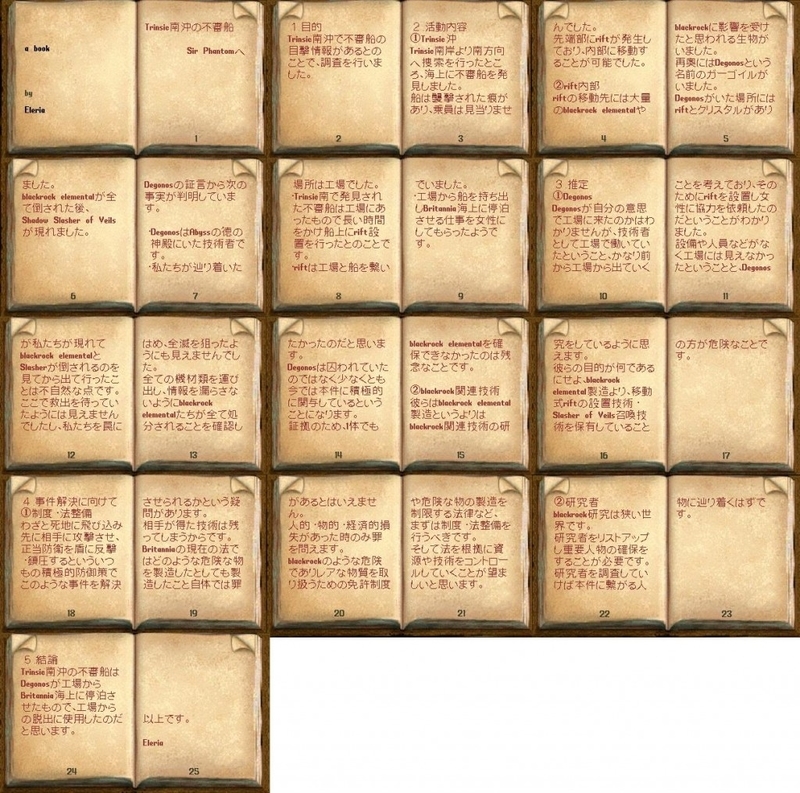 a book
by
Eleria
Trinsic南沖の不審船
Sir Phantomへ
1
1 目的
Trinsic南沖で不審船の
目撃情報があるとの
ことで、調査を行いま
した。
2
2 活動内容
①Trinsic沖
Trinsic南岸より南方向
へ捜索を行ったとこ
ろ、海上に不審船を発
見しました。
船は襲撃された痕が
あり、乗員は見当りませ
3
んでした。
先端部にriftが発生し
ており、内部に移動す
ることが可能でした。
②rift内部
riftの移動先には大量
のblackrock elementalや
4
blackrockに影響を受け
たと思われる生物が
いました。
再奥にはDegonosという
名前のガーゴイルが
いました。
Degonosがいた場所には
riftとクリスタルがあり
5
ました。
blackrock elementalが全
て倒された後、
Shadow Slasher of Veils
が現れました。
6
Degonosの証言から次の
事実が判明していま
す。
・DegonosはAbyssの徳の
神殿にいた技術者で
す。
・私たちが辿り着いた
7
場所は工場でした。
・Trinsic南で発見され
た不審船は工場にあ
ったもので長い時間
をかけ船上にrift設
置を行ったとのことで
す。
・riftは工場と船を繋い
8
でいました。
・工場から船を持ち出
しBritannia海上に停泊
させる仕事を女性に
してもらったようで
す。
9
3 推定
①Degonos
Degonosが自分の意思
で工場に来たのかはわ
かりませんが、技術者
として工場で働いてい
たということ、かなり前
から工場から出ていく
10
ことを考えており、その
ためにriftを設置し女
性に協力を依頼したの
だということがわかり
ました。
設備や人員などがな
く工場には見えなかっ
たということと、Degonos
11
が私たちが現れて
blackrock elementalと
Slasherが倒されるのを
見てから出て行ったこ
とは不自然な点です。
ここで救出を待ってい
たようには見えません
でしたし、私たちを罠に
12
はめ、全滅を狙ったよ
うにも見えませんでし
た。
全ての機材類を運び
出し、情報を漏らさな
いようにblackrock
elementalたちが全て処
分されることを確認し
13
たかったのだと思いま
す。
Degonosは囚われていた
のではなく少なくとも
今では本件に積極的
に関与しているという
ことになります。
証拠のため、1体でも
14
blackrock elementalを確
保できなかったのは残
念なことです。
②blackrock関連技術
彼らはblackrock elemental
製造というよりは
blackrock関連技術の研
15
究をしているように思
えます。
彼らの目的が何である
にせよ、blackrock
elemental製造より、移動
式riftの設置技術・
Slasher of Veils召喚技
術を保有していること
16
の方が危険なことで
す。
17
4 事件解決に向けて
①制度・法整備
わざと死地に飛び込み
先に相手に攻撃させ、
正当防衛を盾に反撃
・鎮圧するといういつ
もの積極的防御策で
このような事件を解決
18
させられるかという疑
問があります。
相手が得た技術は残
ってしまうからです。
Britanniaの現在の法で
はどのような危険な物
を製造したとしても製
造したこと自体では罪
19
があるとはいえませ
ん。
人的・物的・経済的損
失があった時のみ罪
を問えます。
blackrockのような危険
でありレアな物質を取
り扱うための免許制度
20
や危険な物の製造を
制限する法律など、
まずは制度・法整備を
行うべきです。
そして法を根拠に資
源や技術をコントロー
ルしていくことが望ま
しいと思います。
21
②研究者
blackrock研究は狭い世
界です。
研究者をリストアップ
し重要人物の確保を
することが必要です。
研究者を調査してい
けば本件に繋がる人
22
物に辿り着くはずで
す。
23
5 結論
Trinsic南沖の不審船は
Degonosが工場から
Britannia海上に停泊さ
せたもので、工場から
の脱出に使用したのだ
と思います。
24
以上です。
Eleria
25